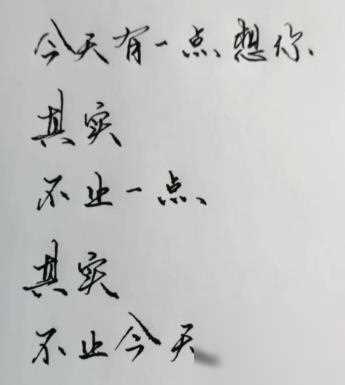 今天有一点想你
其实
不止一点
其实
不止今天